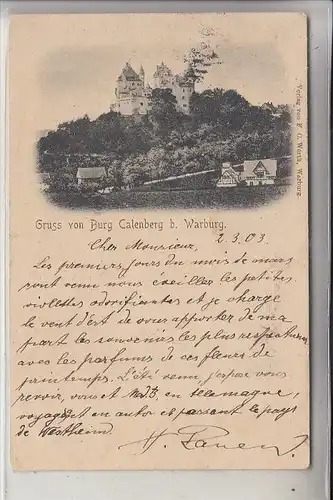 Gruss von Burg Calenberg b. Warburg.
Verlag von F. G. Wertz, Warburg
Cher Monsieur, 2.3.03.
Les premiers jours du mois de mars
sont venu nous éveiller les petites
violettes odorifiantes et je charge
le vent d'est de vous apporter de ma
part les souvenirs les plus respectueux
avec les parfums de ces fleurs de
printemps. L'été venu, j'espère vous
revoir, vous et en allemagne,
voyageant en auto et passant le pays
de Westheim.